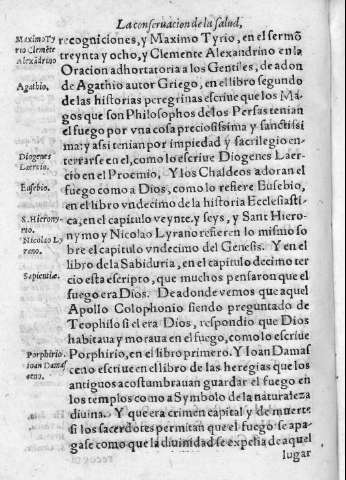 La conseruacion de la salud,
Maximo Ty
rio Clemẽte
Alexãdrino
Agathio.
Diogenes
Laercio.
Eusebio.
S. Hierony-
mo.
Nicolao Ly
rano.
Sapientiæ.
Porphirio.
Ioan Damas
ceno.
recogniciones, y Maximo Tyrio, en el sermõ
treynta y ocho, y Clemente Alexandrino en la
Oracion adhortatoria a los Gentiles, de adon
de Agathio autor Griego, en el libro segundo
de las historias peregrinas escriue que los Ma-
gos que son Philosophos de los Persas tenian
el fuego por vna cosa preciosissima y sanctissi
ma: y assi tenian por impiedad y sacrilegio en-
terrarse en el, como lo escriue Diogenes Laer-
cio en el Proemio, Y los Chaldeos adoran el
fuego como a Dios, como lo refiere Eusebio,
en el libro vndecimo de la historia Ecclesiasti-
ca, en el capitulo veynte, y seys, y Sant Hiero-
nymo y Nicolao Lyrano refieren lo mismo so
bre el capitulo vndecimo del Genesis. Y en el
libro de la Sabiduria, en el capitulo decimo ter
cio esta escripto, que muchos pensaron que el
fuego era Dios. De adonde vemos que aquel
Apollo Colophonio siendo preguntado de
Teophilo si el era Dios, respondio que Dios
habitaua y moraua en el fuego, como lo escriue
Porphirio, en el libro primero. Y Ioan Damas
ceno escriue en el libro de las heregias que los
antiguos acostumbrauan guardar el fuego en
los templos como a Symbolo de la naturaleza
diuina. Y que era crimen capital y de muerte
si los sacerdotes permitan que el fuego se apa-
gase como que la diuinidad se expelia de aquel
lugar